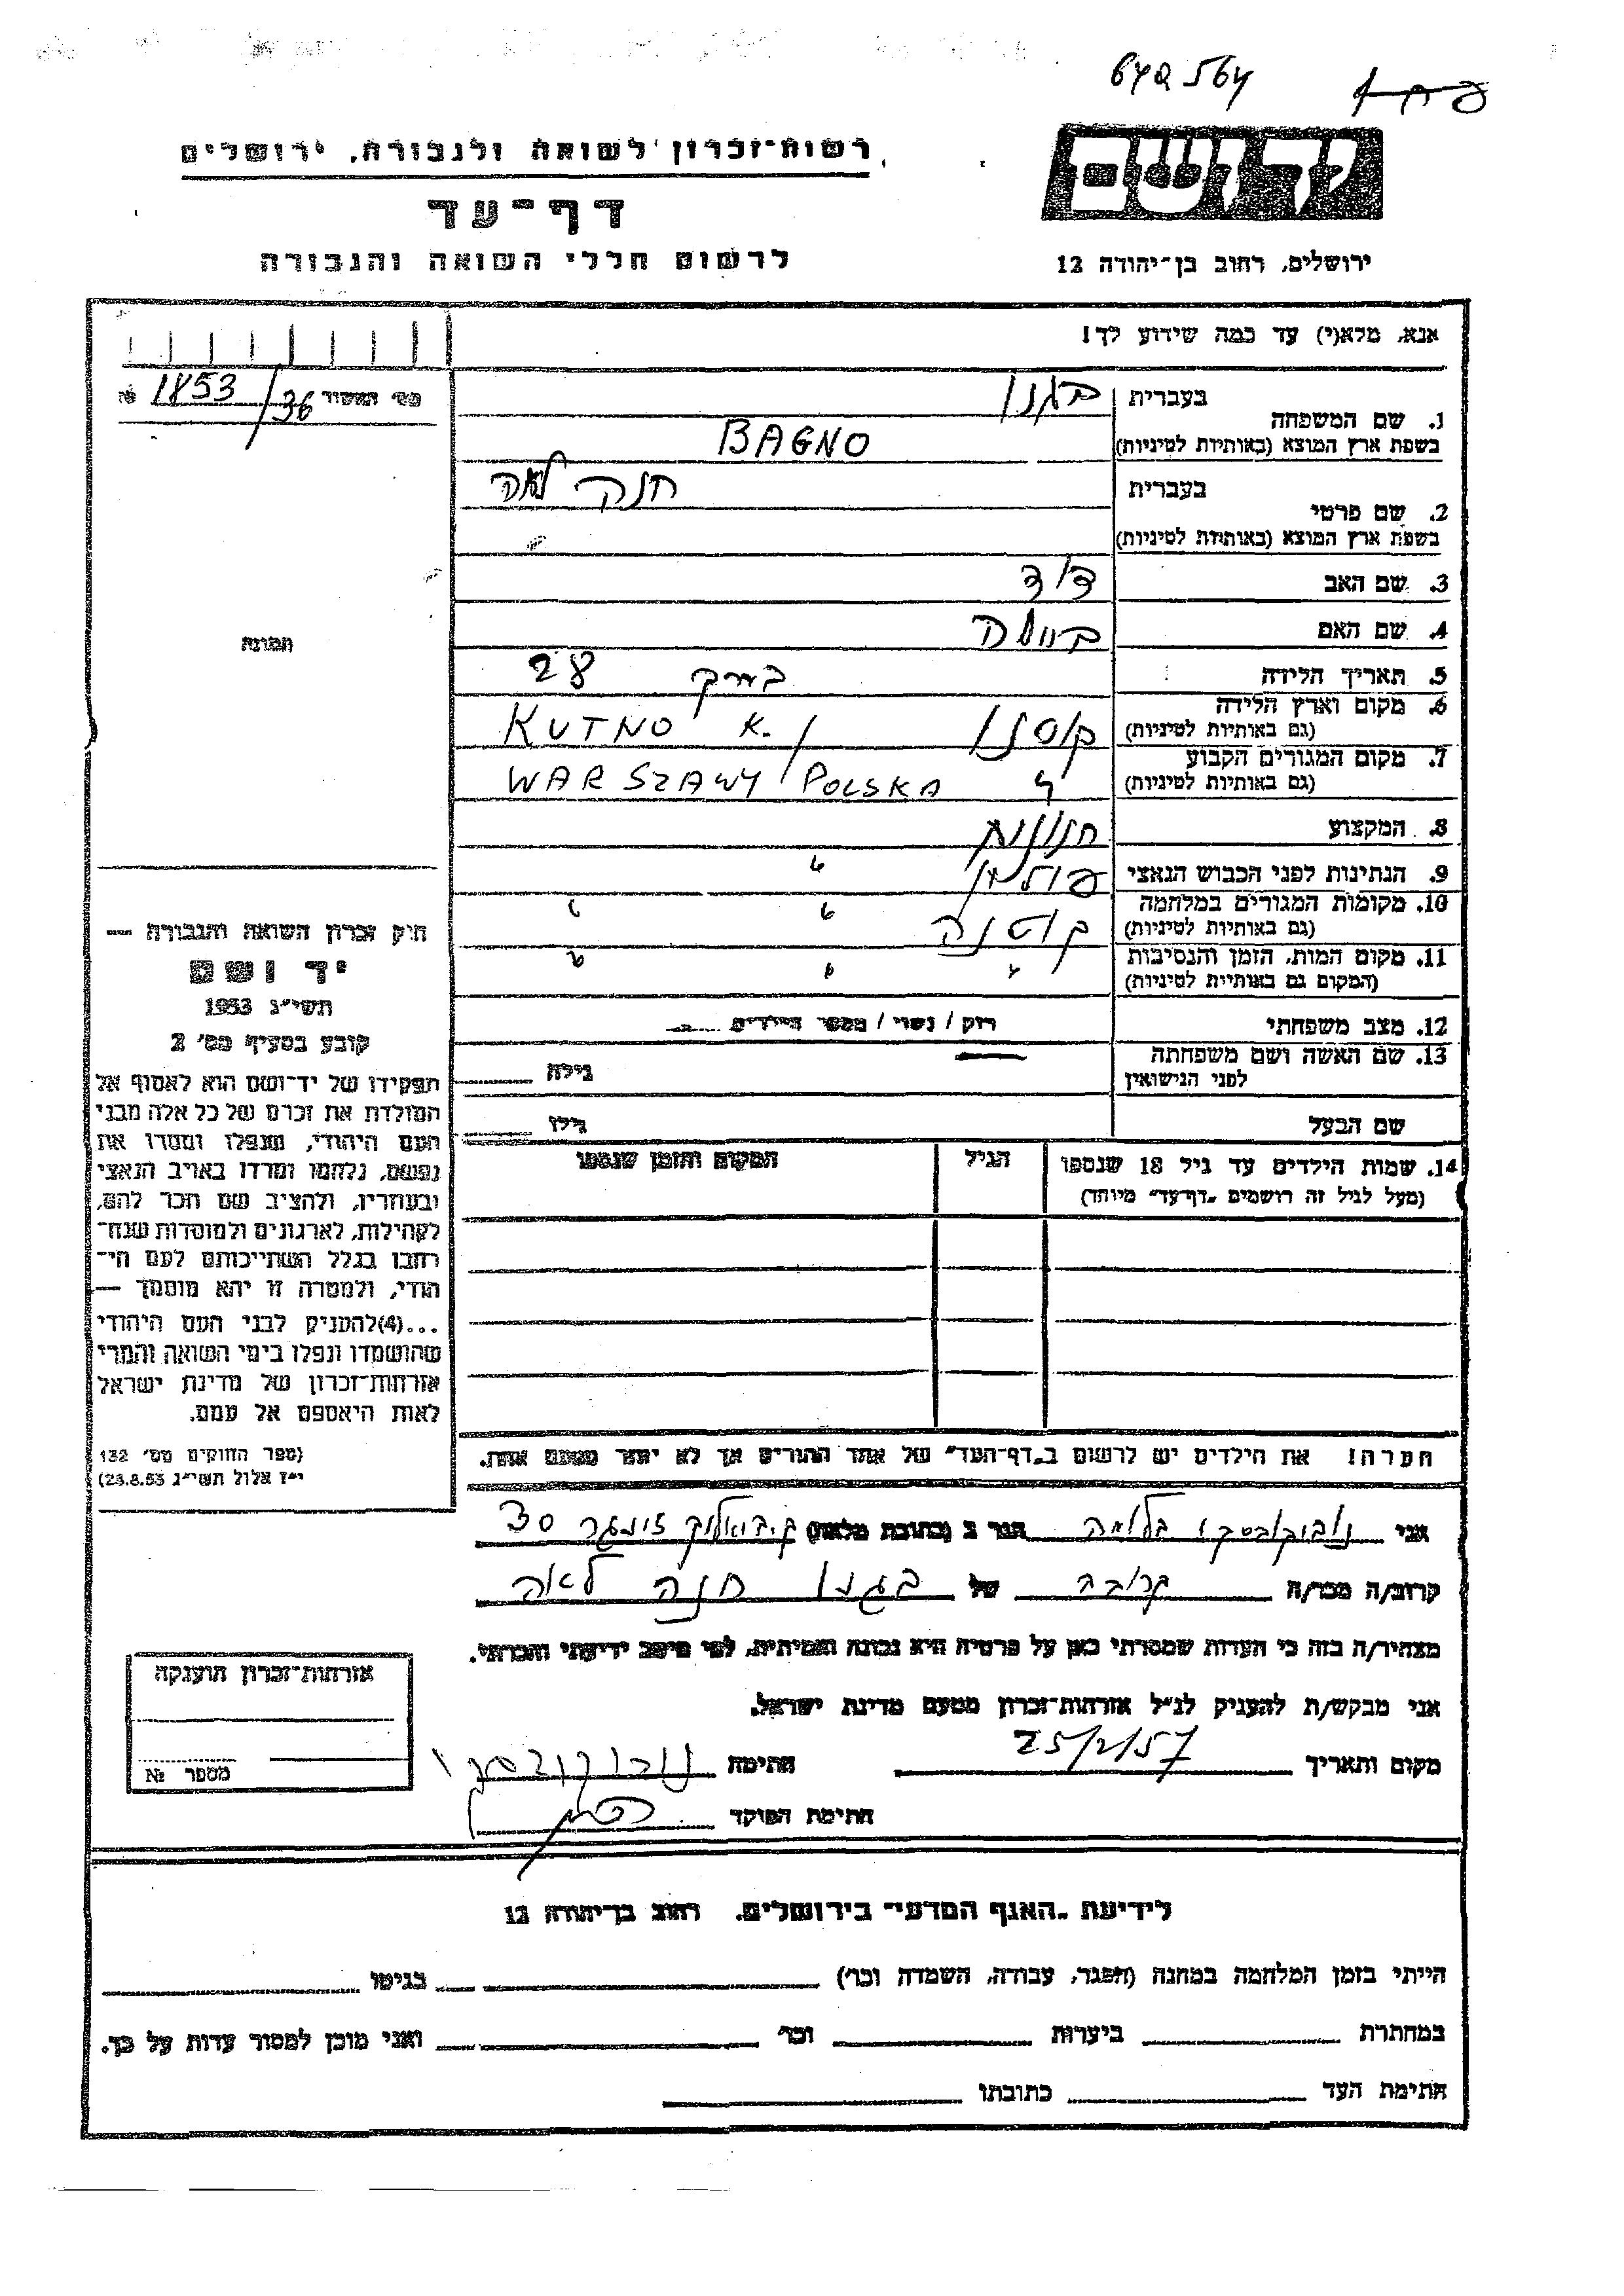 642564
רשות־זכרון לשואה ולגבורה, ירושלים
ידושם
דף־עד
לרשום חללי השואה והגבורה
ירושלים, רחוב בן־יהודה 12
אנא, מלא(י) עד כמה שידוע לך!
מס׳ תמסיר № 1853/36
בעברית בגנו
1. שם המשפחה
בשפת ארץ המוצא (באותיות לטיניות) BAGNO
בעברית חנה לאה
2. שם פרטי
בשפת ארץ המוצא (באותיות לטיניות)
3. שם האב דוד
4. שם האם
תמונה
5. תאריך הלידה 28
6. מקום וארץ הלידה
(גם באותיות לטיניות) קוטנו KUTNO K.
7. מקום המגורים הקבוע
(גם באותיות לטיניות) WARSZAWY POLSKA
8. המקצוע
9. הנתינות לפני הכבוש הנאצי
10. מקומות המגורים במלחמה
(גם באותיות לטיניות) קוטנה
11. מקום המות, הזמן והנסיבות
(המקום גם באותיות לטיניות)
12. מצב משפחתי רוק / נשוי / מספר הילדים
13. שם האשה ושם משפחתה
לפני הנישואין גילה
שם הבעל גילו
14. שמות הילדים עד גיל 18 שנספו הגיל המקום והזמן שנספו
(מעל לגיל זה רושמים "דף־עד" מיוחד)
הערה! את הילדים יש לרשום ב"דף־העד" של אחד ההורים אך לא יותר מפעם אחת.
חוק זכרון השואה והגבורה —
יד ושם
תשי״ג 1953
קובע בסעיף מס׳ 2
תפקידו של יד־ושם הוא לאסוף אל
המולדת את זכרם של כל אלה מבני
העם היהודי, שנפלו ומסרו את
נפשם, נלחמו ומרדו באויב הנאצי
ובעוזריו, ולהציב שם וזכר להם,
לקהילות, לארגונים ולמוסדות שנח־
רבו בגלל השתייכותם לעם הי־
הודי, ולמטרה זו יהא מוסמך —
...(4)להעניק לבני העם היהודי
שהושמדו ונפלו בימי השואה והמרי
אזרחות־זכרון של מדינת ישראל
לאות היאספם אל עמם.
(ספר החוקים מס׳ 132
י״ז אלול תשי״ג 28.8.53)
אני הגר ב (כתובת מלאה) 30
קרוב/ה מכר/ה קרובה של בגנו חנה לאה
מצהיר/ה בזה כי העדות שמסרתי כאן על פרטיה היא נכונה ואמיתית, לפי מיטב ידיעתי והכרתי.
אני מבקש/ת להעניק לנ״ל אזרחות־זכרון מטעם מדינת ישראל.
מקום ותאריך 25/2/57 חתימה
חתימת הפוקד
אזרחות־זכרון הוענקה
מספר №
לידיעת "האגף המדעי" בירושלים, רחוב בן־יהודה 12
הייתי בזמן המלחמה במחנה (הסגר, עבודה, השמדה וכו׳) בגיטו
במחתרת ביערות וכו׳ ואני מוכן למסור עדות על כך.
חתימת העד כתובתו